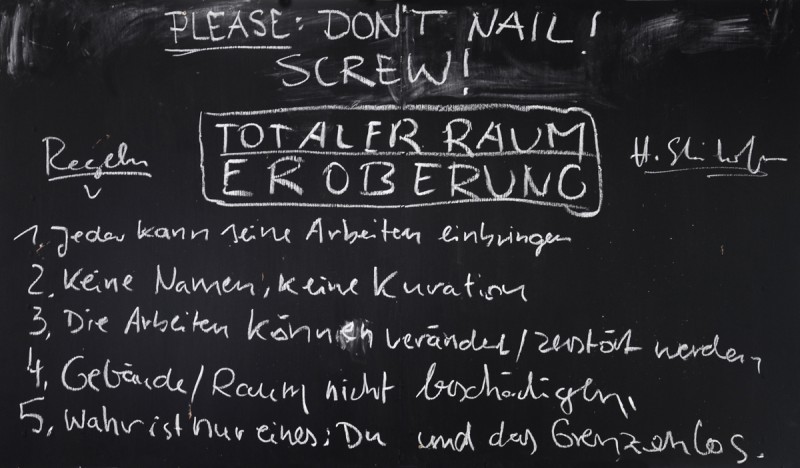 PLEASE: DON'T NAIL!
SCREW!
TOTALER RAUM
EROBERUNG
Regeln
H.
1. Jeder kann seine Arbeiten einbringen
2. Keine Namen, keine Kuration
3. Die Arbeiten können verändert/zerstört werden,
4. Gebäude/Raum nicht beschädigen,
5. Wahr ist nur eines: Du und das Grenzenlos.